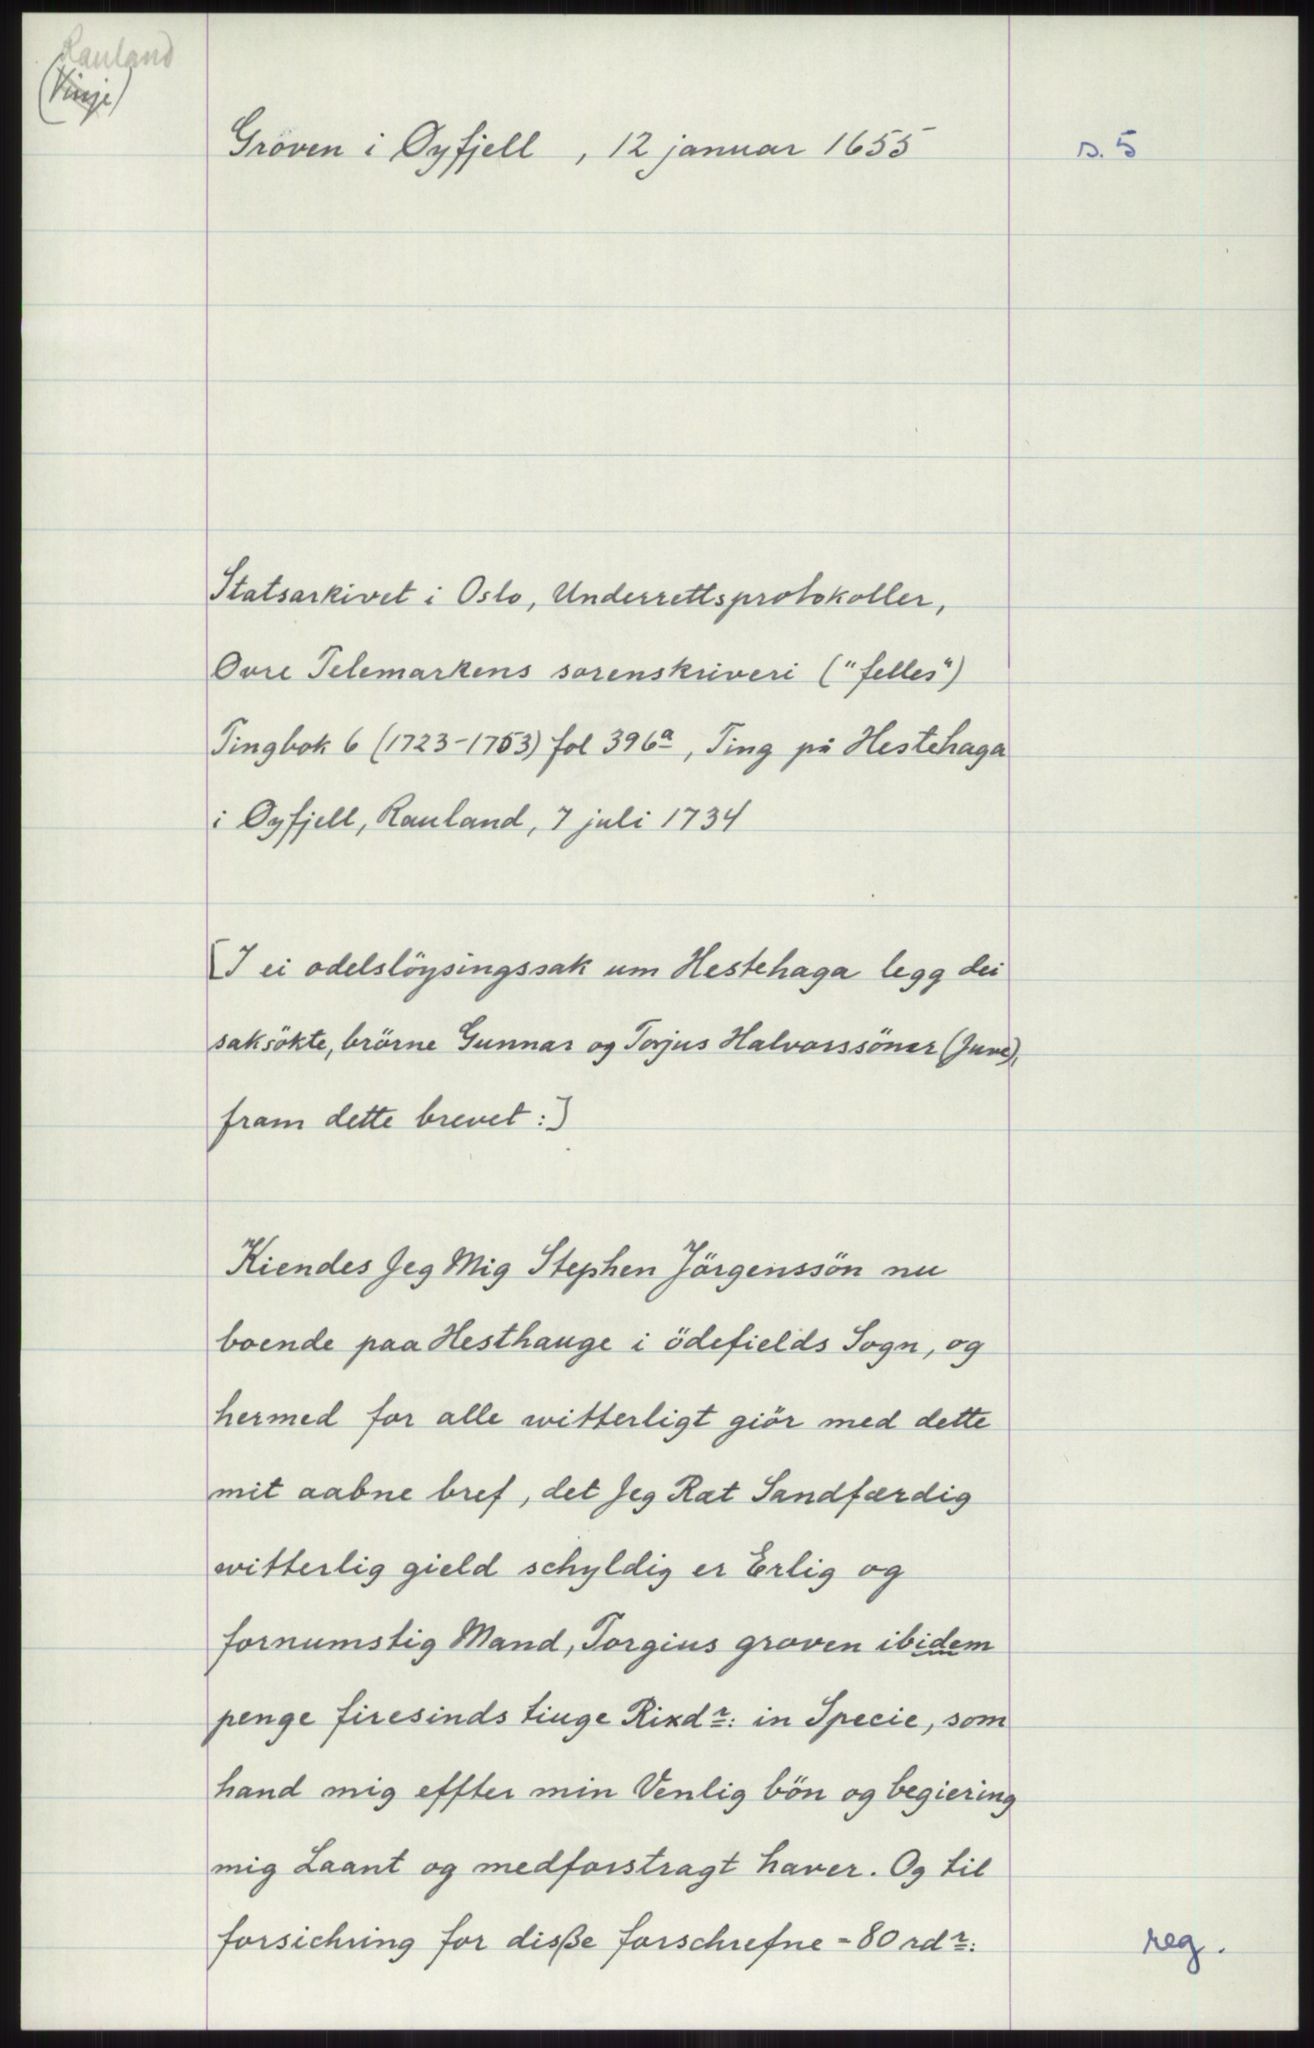 Rauland
(Vinje)
Groven i Øyfjell, 12 januar 1655
s. 5
Statsarkivet i Oslo, Underrettsprotokoller,
Øvre Telemarkens sorenskriveri ("felles")
Tingbok 6 (1723-1753) fol 396a, Ting på Hestehaga
i Øyfjell, Rauland, 7 juli 1734
[I ei odelslöysingssak um Hestehaga legg dei
saksökte, brörne Gunnar og Torjus Halvorssöner (Juve),
fram dette brevet:]
Kiendes Jeg Mig Stephen Jörgenssön nu
boende paa Hesthauge i ödefields Sogn, og
hermed for alle witterligt giör med dette
mit aabne bref, det Jeg Ræt Sandfærdig
witterlig gield schyldig er Erlig og
fornumstig Mand, Torgius groven ibidem
penge firesinds tiuge Rixdr: in Specie, som
hand mig effter min Venlig bön og begiering
mig Laant og medforstragt haver. Og til
forsichring for disße forschrefne - 80 rdr:
reg.